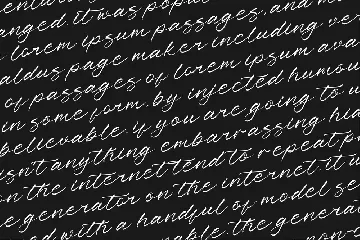 anged. it was popu
lorem ipsum passages, and m
aldus page maker including ve
of passages of lorem ipsum ava
in some form, by injected humou
believable. if you are going to u
sn't anything embarrassing hid
on the internet tend to repeat p
on the internet. it u
e generator
ed with a handful of model se
able. the genera
non-c